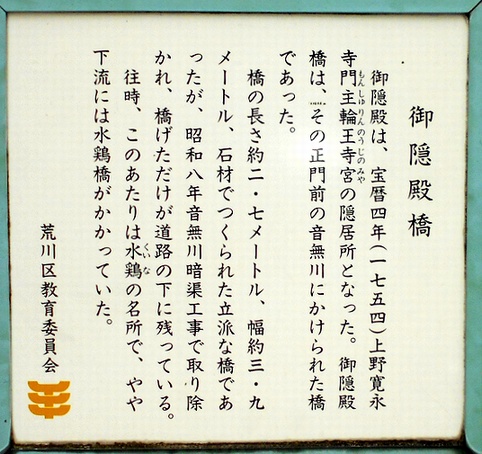 御隠殿橋
御隠殿は、宝暦四年(一七五四)上野寛永
寺門主輪王寺宮の隠居所となった。御隠殿
もんしゅりんのうじのみや
橋は、その正門前の音無川にかけられた橋
であった。
橋の長さ約二・七メートル、幅約三・九
メートル、石材でつくられた立派な橋であ
ったが、昭和八年音無川暗渠工事で取り除
かれ、橋げただけが道路の下に残っている。
往時、このあたりは水鶏の名所で、やや
くいな
下流には水鶏橋がかかっていた。
荒川区教育委員会